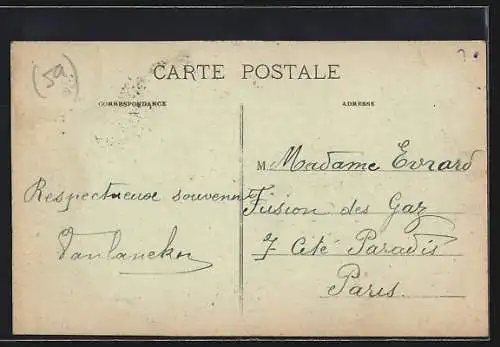 (59)
CARTE POSTALE
CORRESPONDANCE
ADRESSE
Respectueux souvenir
M Madame Evrard
Fusion des Gaz
7 Cité Paradis
Paris.